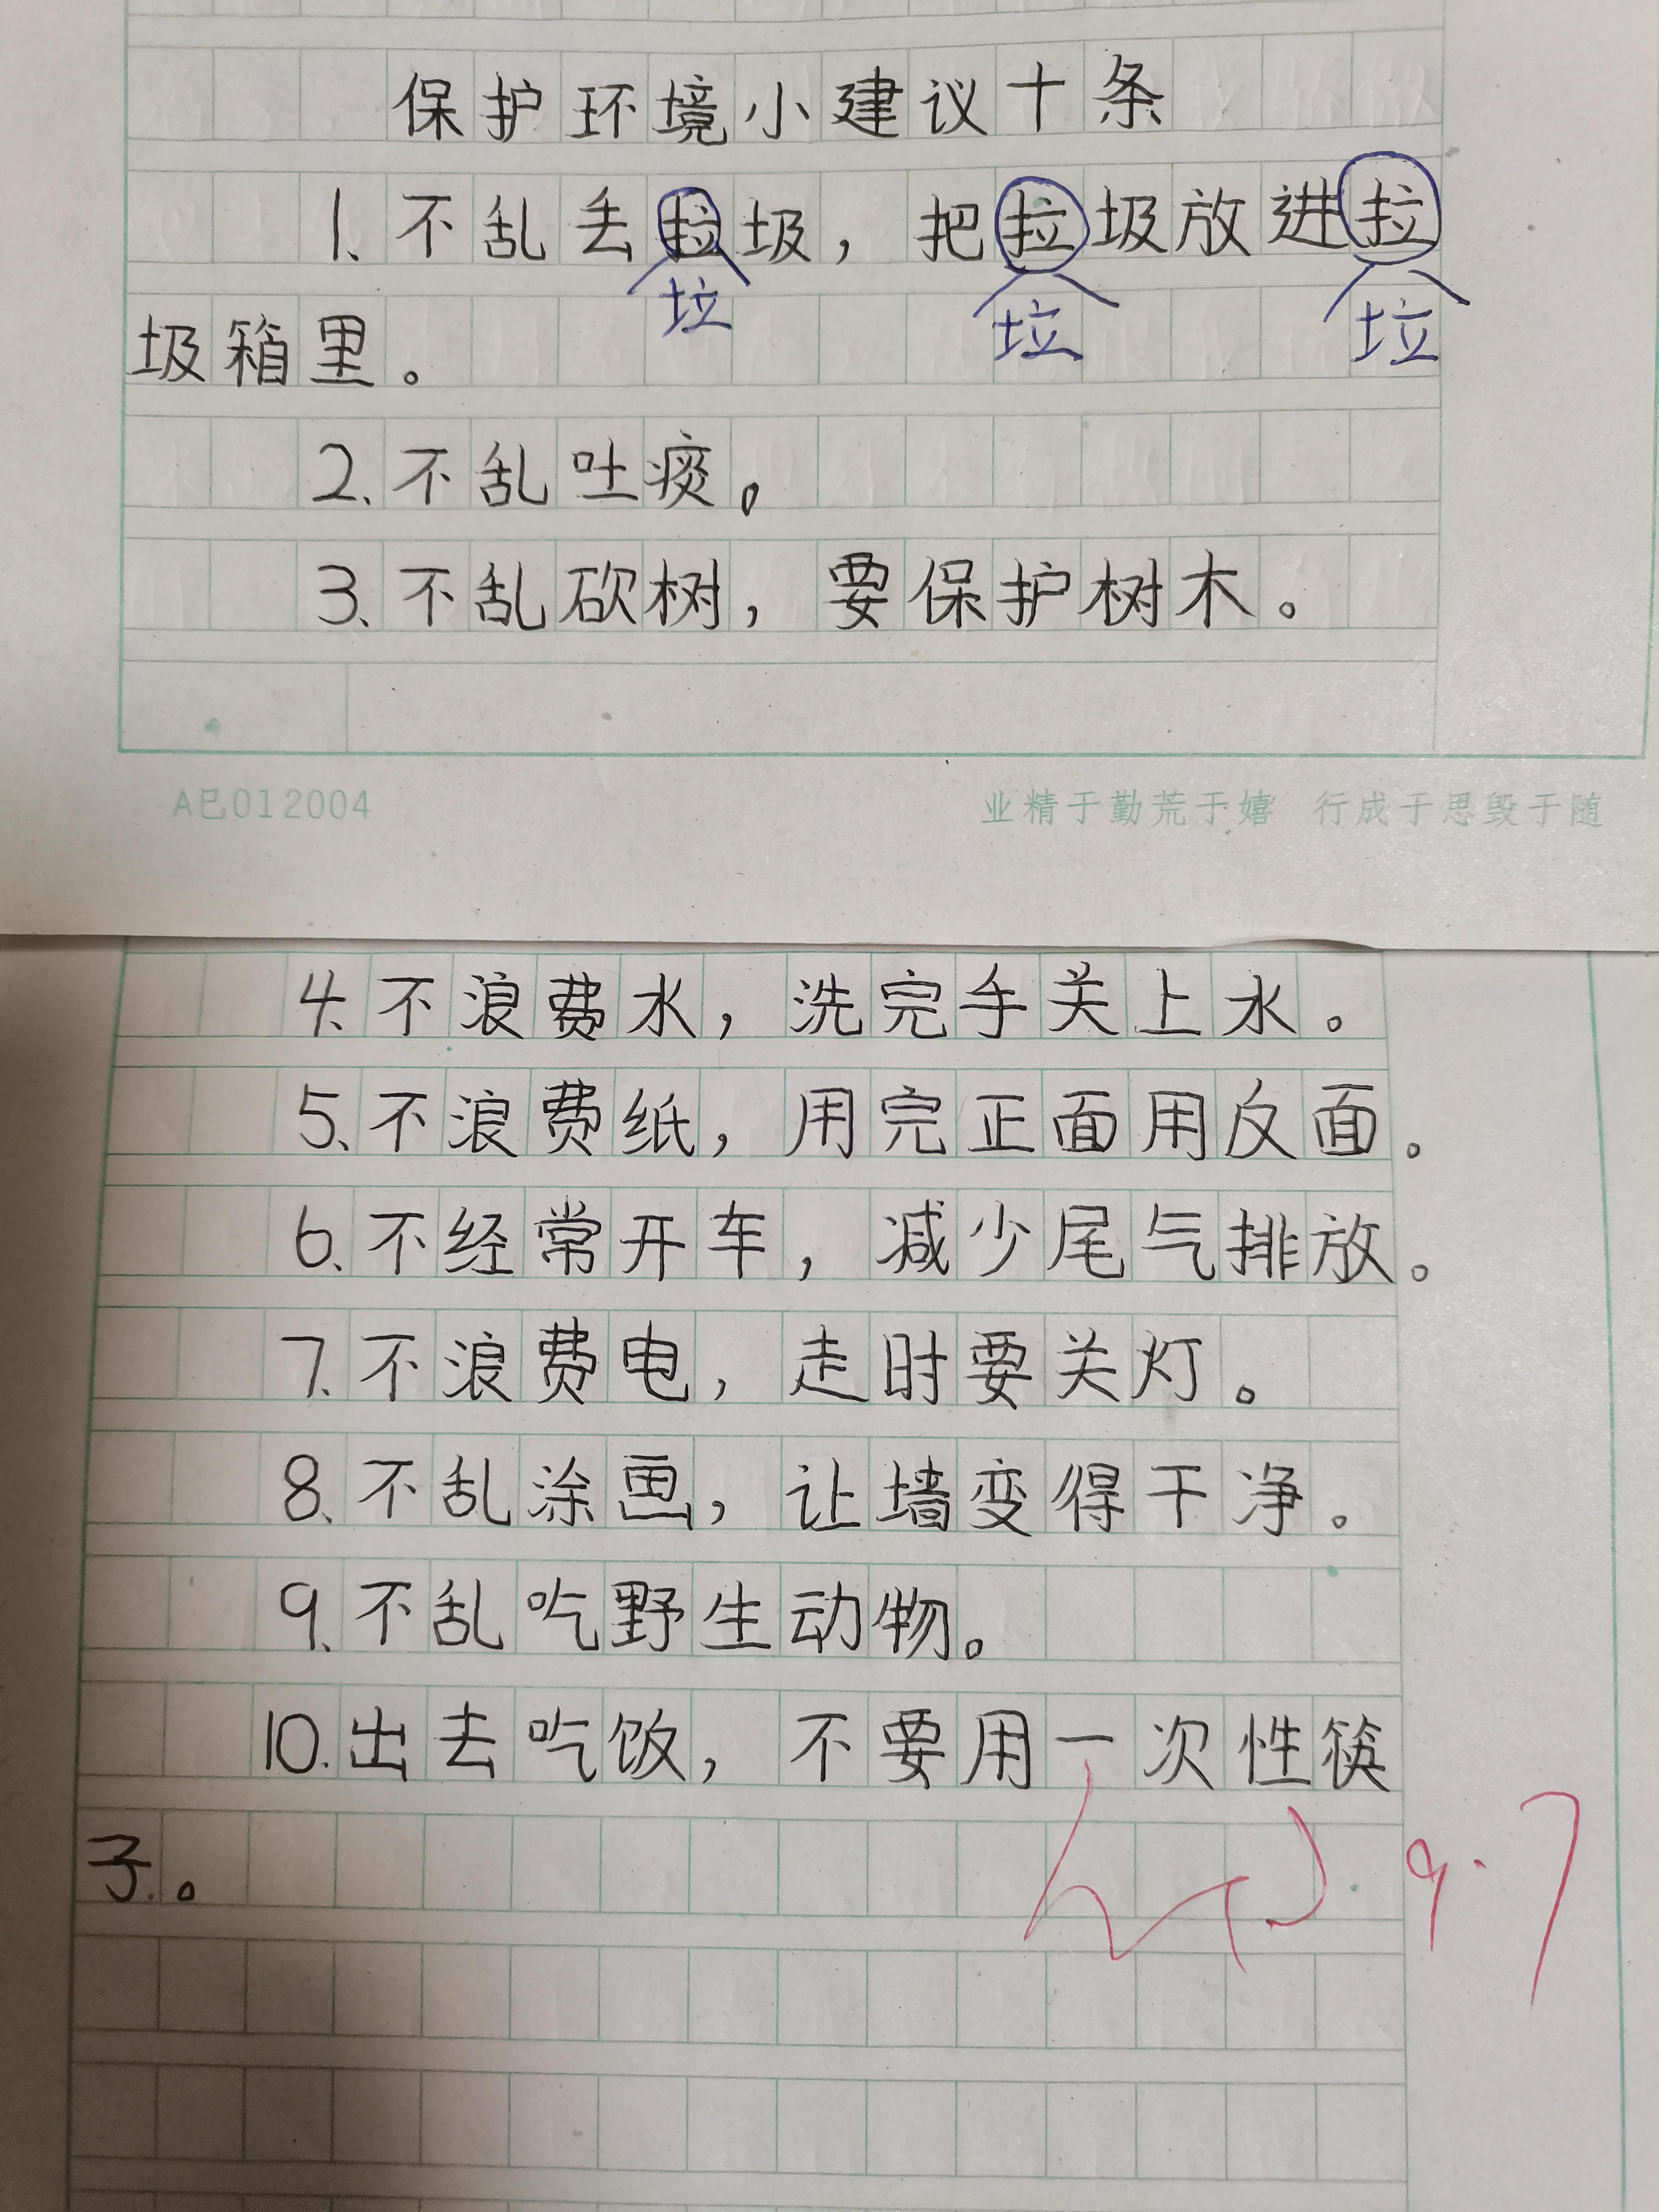 保护环境小建议十条
1.不乱丢拉圾，把拉圾放进拉
垃 垃 垃
圾箱里。
2.不乱吐痰。
3.不乱砍树，要保护树木。
A巳012004 业精于勤荒于嬉 行成于思毁于随
4.不浪费水，洗完手关上水。
5.不浪费纸，用完正面用反面。
6.不经常开车，减少尾气排放。
7.不浪费电，走时要关灯。
8.不乱涂画，让墙变得干净。
9.不乱吃野生动物。
10.出去吃饭，不要用一次性筷
子。
9.7